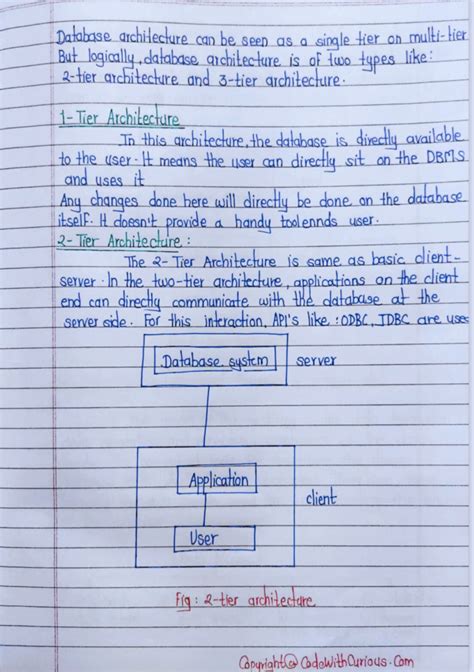 Database architecture can be seen as a single tier on multi-tier
But logically, database architecture is of two types like:
2-tier architecture and 3-tier architecture.
1-Tier Architecture
In this architecture, the database is directly available
to the user. It means the user can directly sit on the DBMS
and uses it
Any changes done here will directly be done on the database
itself. It doesn't provide a handy toolennds user.
2-Tier Architecture:
The 2-Tier Architecture is same as basic client-
server. In the two-tier architecture, applications on the client
end can directly communicate with the database at the
server side. For this interaction, API's like: ODBC, JDBC are uses
Database system
server
Application
client
User
Fig: 2-tier architecture
Copyright@CodeWithCurious.Com